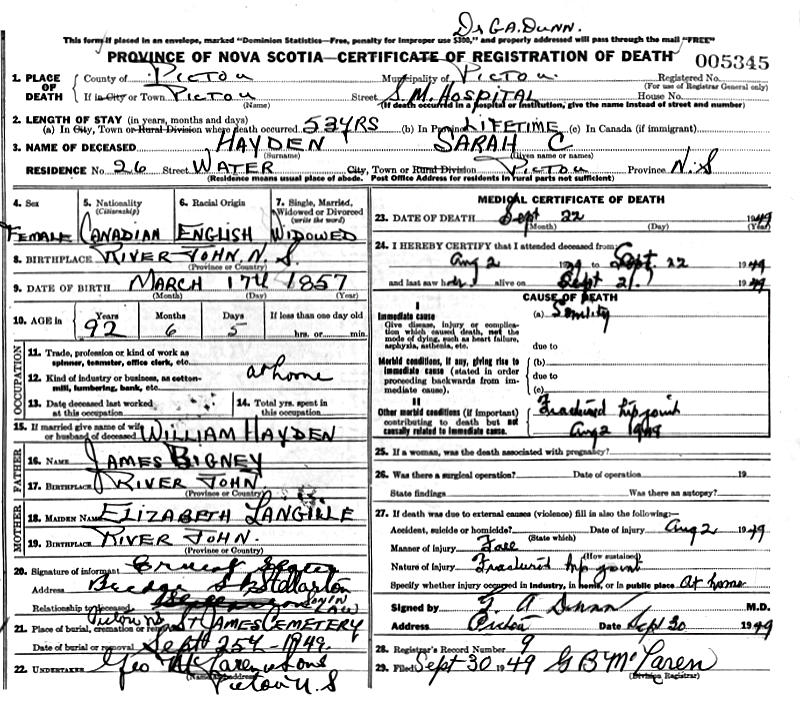 Dr G.A. DUNN.
This form if placed in an envelope, marked "Dominion Statistics—Free, penalty for improper use $300," and properly addressed will pass through the mail "FREE"
PROVINCE OF NOVA SCOTIA—CERTIFICATE OF REGISTRATION OF DEATH 005345
1. PLACE OF DEATH
County of PICTOU Municipality of PICTOU Registered No.
(For use of Registrar General only)
If in City or Town PICTOU Street S.M. HOSPITAL House No.
(Name) (If death occurred in a hospital or institution, give the name instead of street and number)
2. LENGTH OF STAY (in years, months and days)
(a) In City, Town or Rural Division where death occurred 52 YRS (b) In Province LIFETIME (c) In Canada (if immigrant)
3. NAME OF DECEASED HAYDEN SARAH C
(Surname) (Given name or names)
RESIDENCE No. 26 Street WATER City, Town or Rural Division PICTOU Province N.S
(Residence means usual place of abode. Post Office Address for residents in rural parts not sufficient)
4. Sex 5. Nationality (Citizenship) 6. Racial Origin 7. Single, Married, Widowed or Divorced (write the word)
FEMALE CANADIAN ENGLISH WIDOWED
8. BIRTHPLACE RIVER JOHN, N.S.
(Province or Country)
9. DATE OF BIRTH MARCH 17th 1857
(Month) (Day) (Year)
10. AGE in Years Months Days If less than one day old
92 6 5 hrs. or min.
OCCUPATION
11. Trade, profession or kind of work as spinner, teamster, office clerk, etc.
12. Kind of industry or business, as cotton-mill, lumbering, bank, etc. at home
13. Date deceased last worked at this occupation 14. Total yrs. spent in this occupation
15. If married give name of wife or husband of deceased WILLIAM HAYDEN
FATHER
16. NAME JAMES BIGNEY
17. BIRTHPLACE RIVER JOHN.
(Province or Country)
MOTHER
18. MAIDEN NAME ELIZABETH LANGILLE
19. BIRTHPLACE RIVER JOHN.
(Province or Country)
20. Signature of informant Ernest
Address Bridge St Stellarton
Relationship to deceased SON IN LAW
Pictou NS
21. Place of burial, cremation or removal ST JAMES CEMETERY
Date of burial or removal Sept 25th - 1949.
22. UNDERTAKER Geo McLaren & Sons
(Name and address) Pictou N.S
MEDICAL CERTIFICATE OF DEATH
23. DATE OF DEATH Sept 22 1949
(Month) (Day) (Year)
24. I HEREBY CERTIFY that I attended deceased from:
Aug 2 1949 to Sept. 22 1949
and last saw her alive on Sept 21. 1949
CAUSE OF DEATH
I
Immediate cause (a) Senility
Give disease, injury or complication which caused death, not the mode of dying, such as heart failure, asphyxia, asthenia, etc.
due to
Morbid conditions, if any, giving rise to immediate cause (stated in order proceeding backwards from immediate cause).
(b)
due to
(c)
II
Other morbid conditions (if important) contributing to death but not causally related to immediate cause.
Fractured hip joint
Aug 2 1949
25. If a woman, was the death associated with pregnancy?
26. Was there a surgical operation? Date of operation 19
State findings Was there an autopsy?
27. If death was due to external causes (violence) fill in also the following:—
Accident, suicide or homicide? Date of injury Aug 2 1949
(State which)
Manner of injury Fall
(How sustained)
Nature of injury Fractured hip joint
Specify whether injury occurred in industry, in home, or in public place At home
Signed by G A Dunn M.D.
Address Pictou Date Sept 30 1949
28. Registrar's Record Number 9
29. Filed Sept 30 1949 G B McLaren
(Division Registrar)